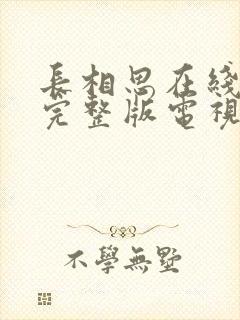 長相思在綫
完整版電視
不學無墅